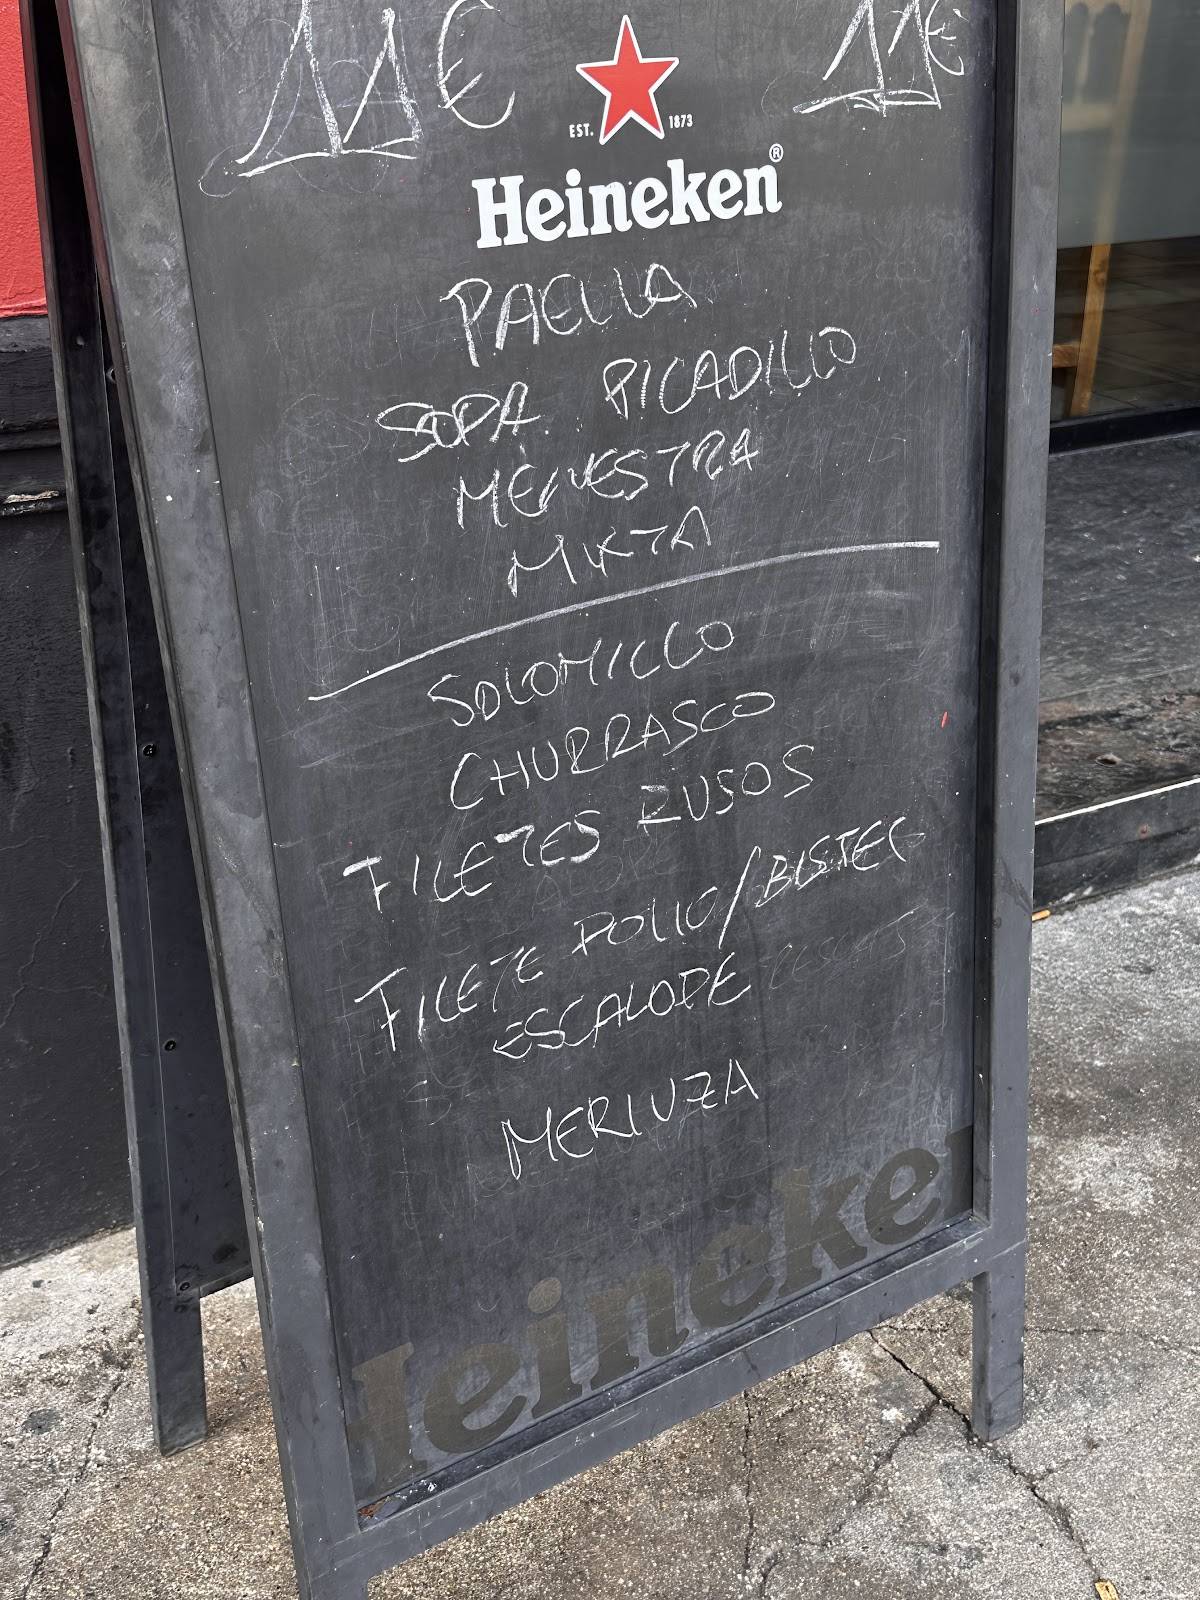 11€ 11€
EST. 1873
Heineken®
PAELLA
SOPA PICADILLO
MENESTRA
MIXTA
SOLOMILLO
CHURRASCO
FILETES RUSOS
FILETE POLLO/BISTEC
ESCALOPE
MERLUZA
Heineken